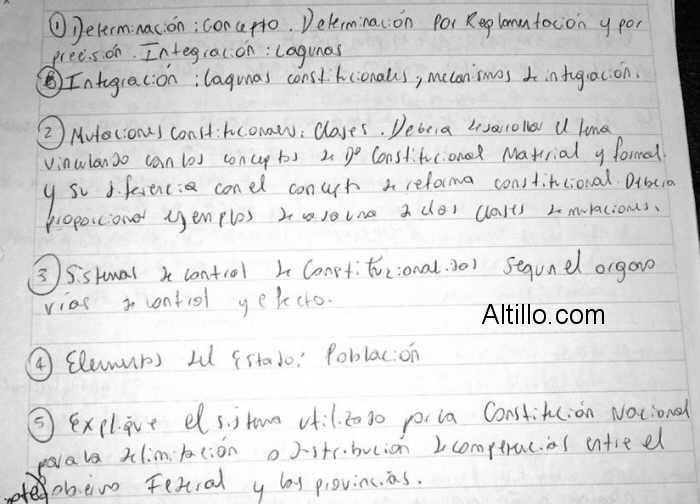 ① Determinación: concepto. Determinación por Reglamentación y por
precisión. Integración: lagunas
⑥ Integración: lagunas constitucionales, mecanismos de integración.
② Mutaciones constitucionales: Clases. Deberia desarrollar el tema
vinculando con los conceptos de Dº Constitucional Material y formal
y su diferencia con el concepto de reforma constitucional. Deberia
proporcionar ejemplos de cada una de las clases de mutaciones.
③ Sistemas de control de Constitucionalidad segun el organo
vias de control y efecto.
Altillo.com
④ Elementos del Estado: Población
⑤ Explique el sistema utilizado por la Constitución Nacional
para la delimitación o distribución de competencias entre el
Gobierno Federal y las provincias.